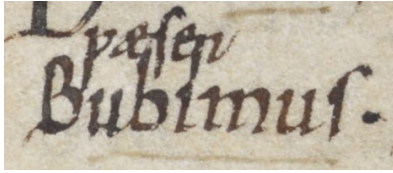 pæsen
Bubimus.